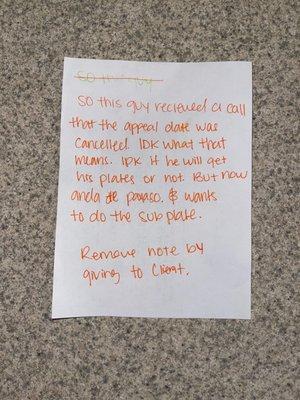 So this guy
So this guy recieved a call
that the appeal date was
Cancelled. IDK what that
means. IDK if he will get
his plates or not. But now
anda de payaso. & wants
to do the sub plate.
Remove note by
giving to Client.